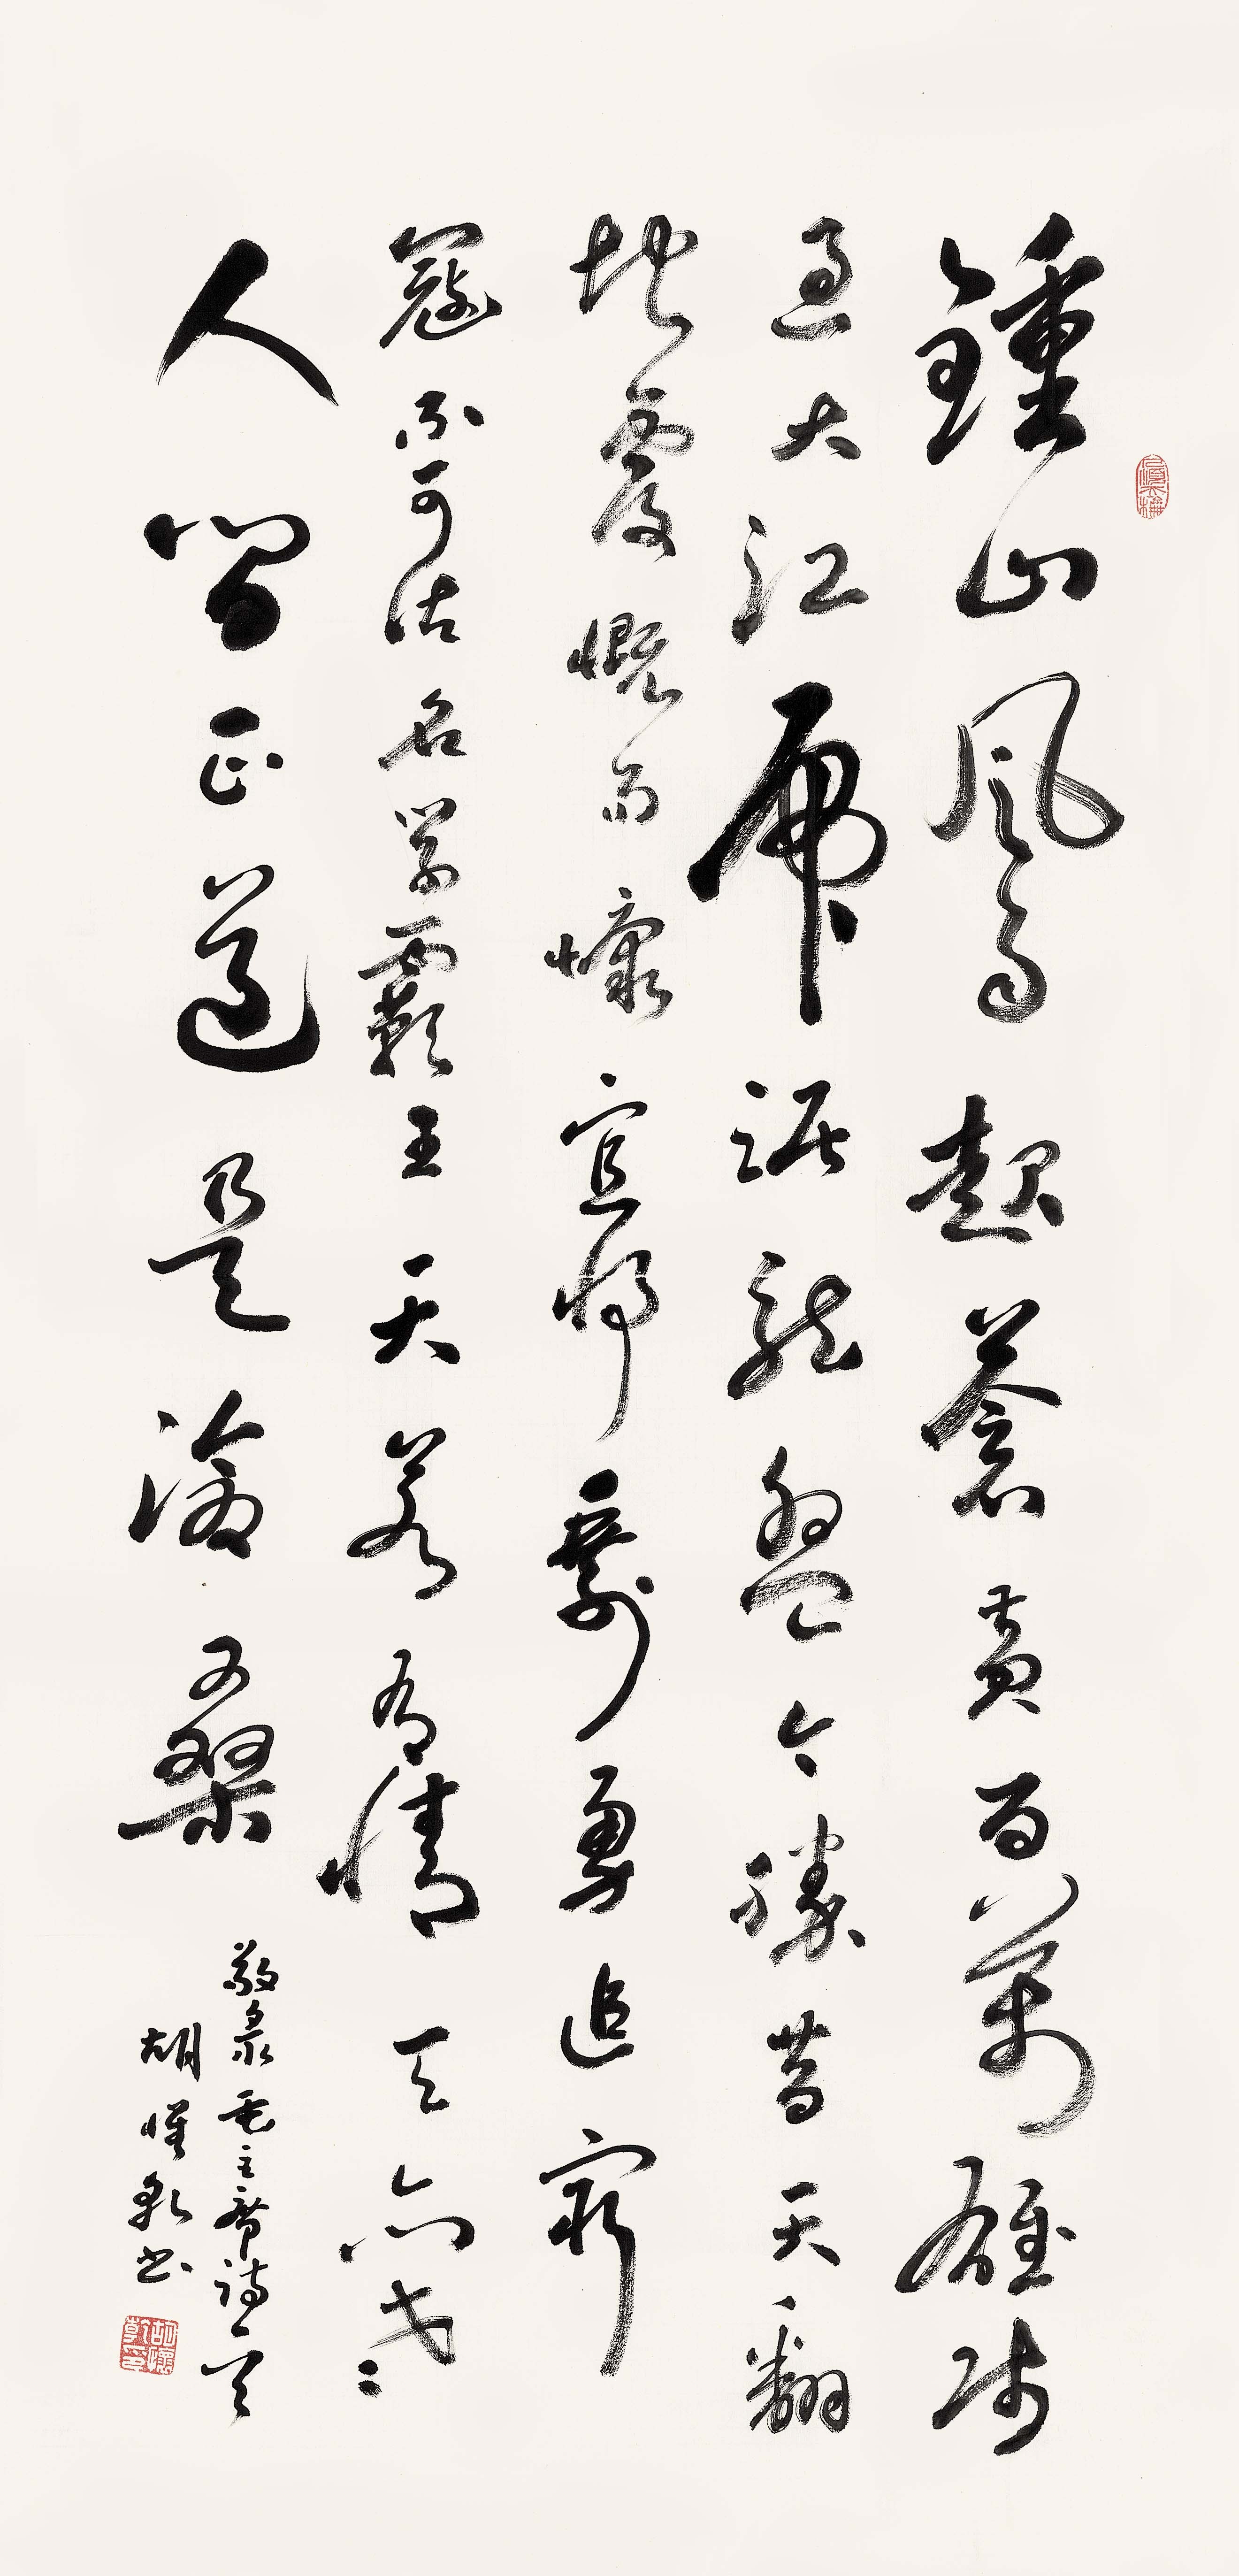 鍾山風雨起蒼黃百萬雄師
過大江虎踞龍盤今勝昔天翻
地覆慨而慷宜將剩勇追窮
寇不可沽名學霸王天若有情天亦老
人間正道是滄桑
敬录毛主席詩一首
胡書